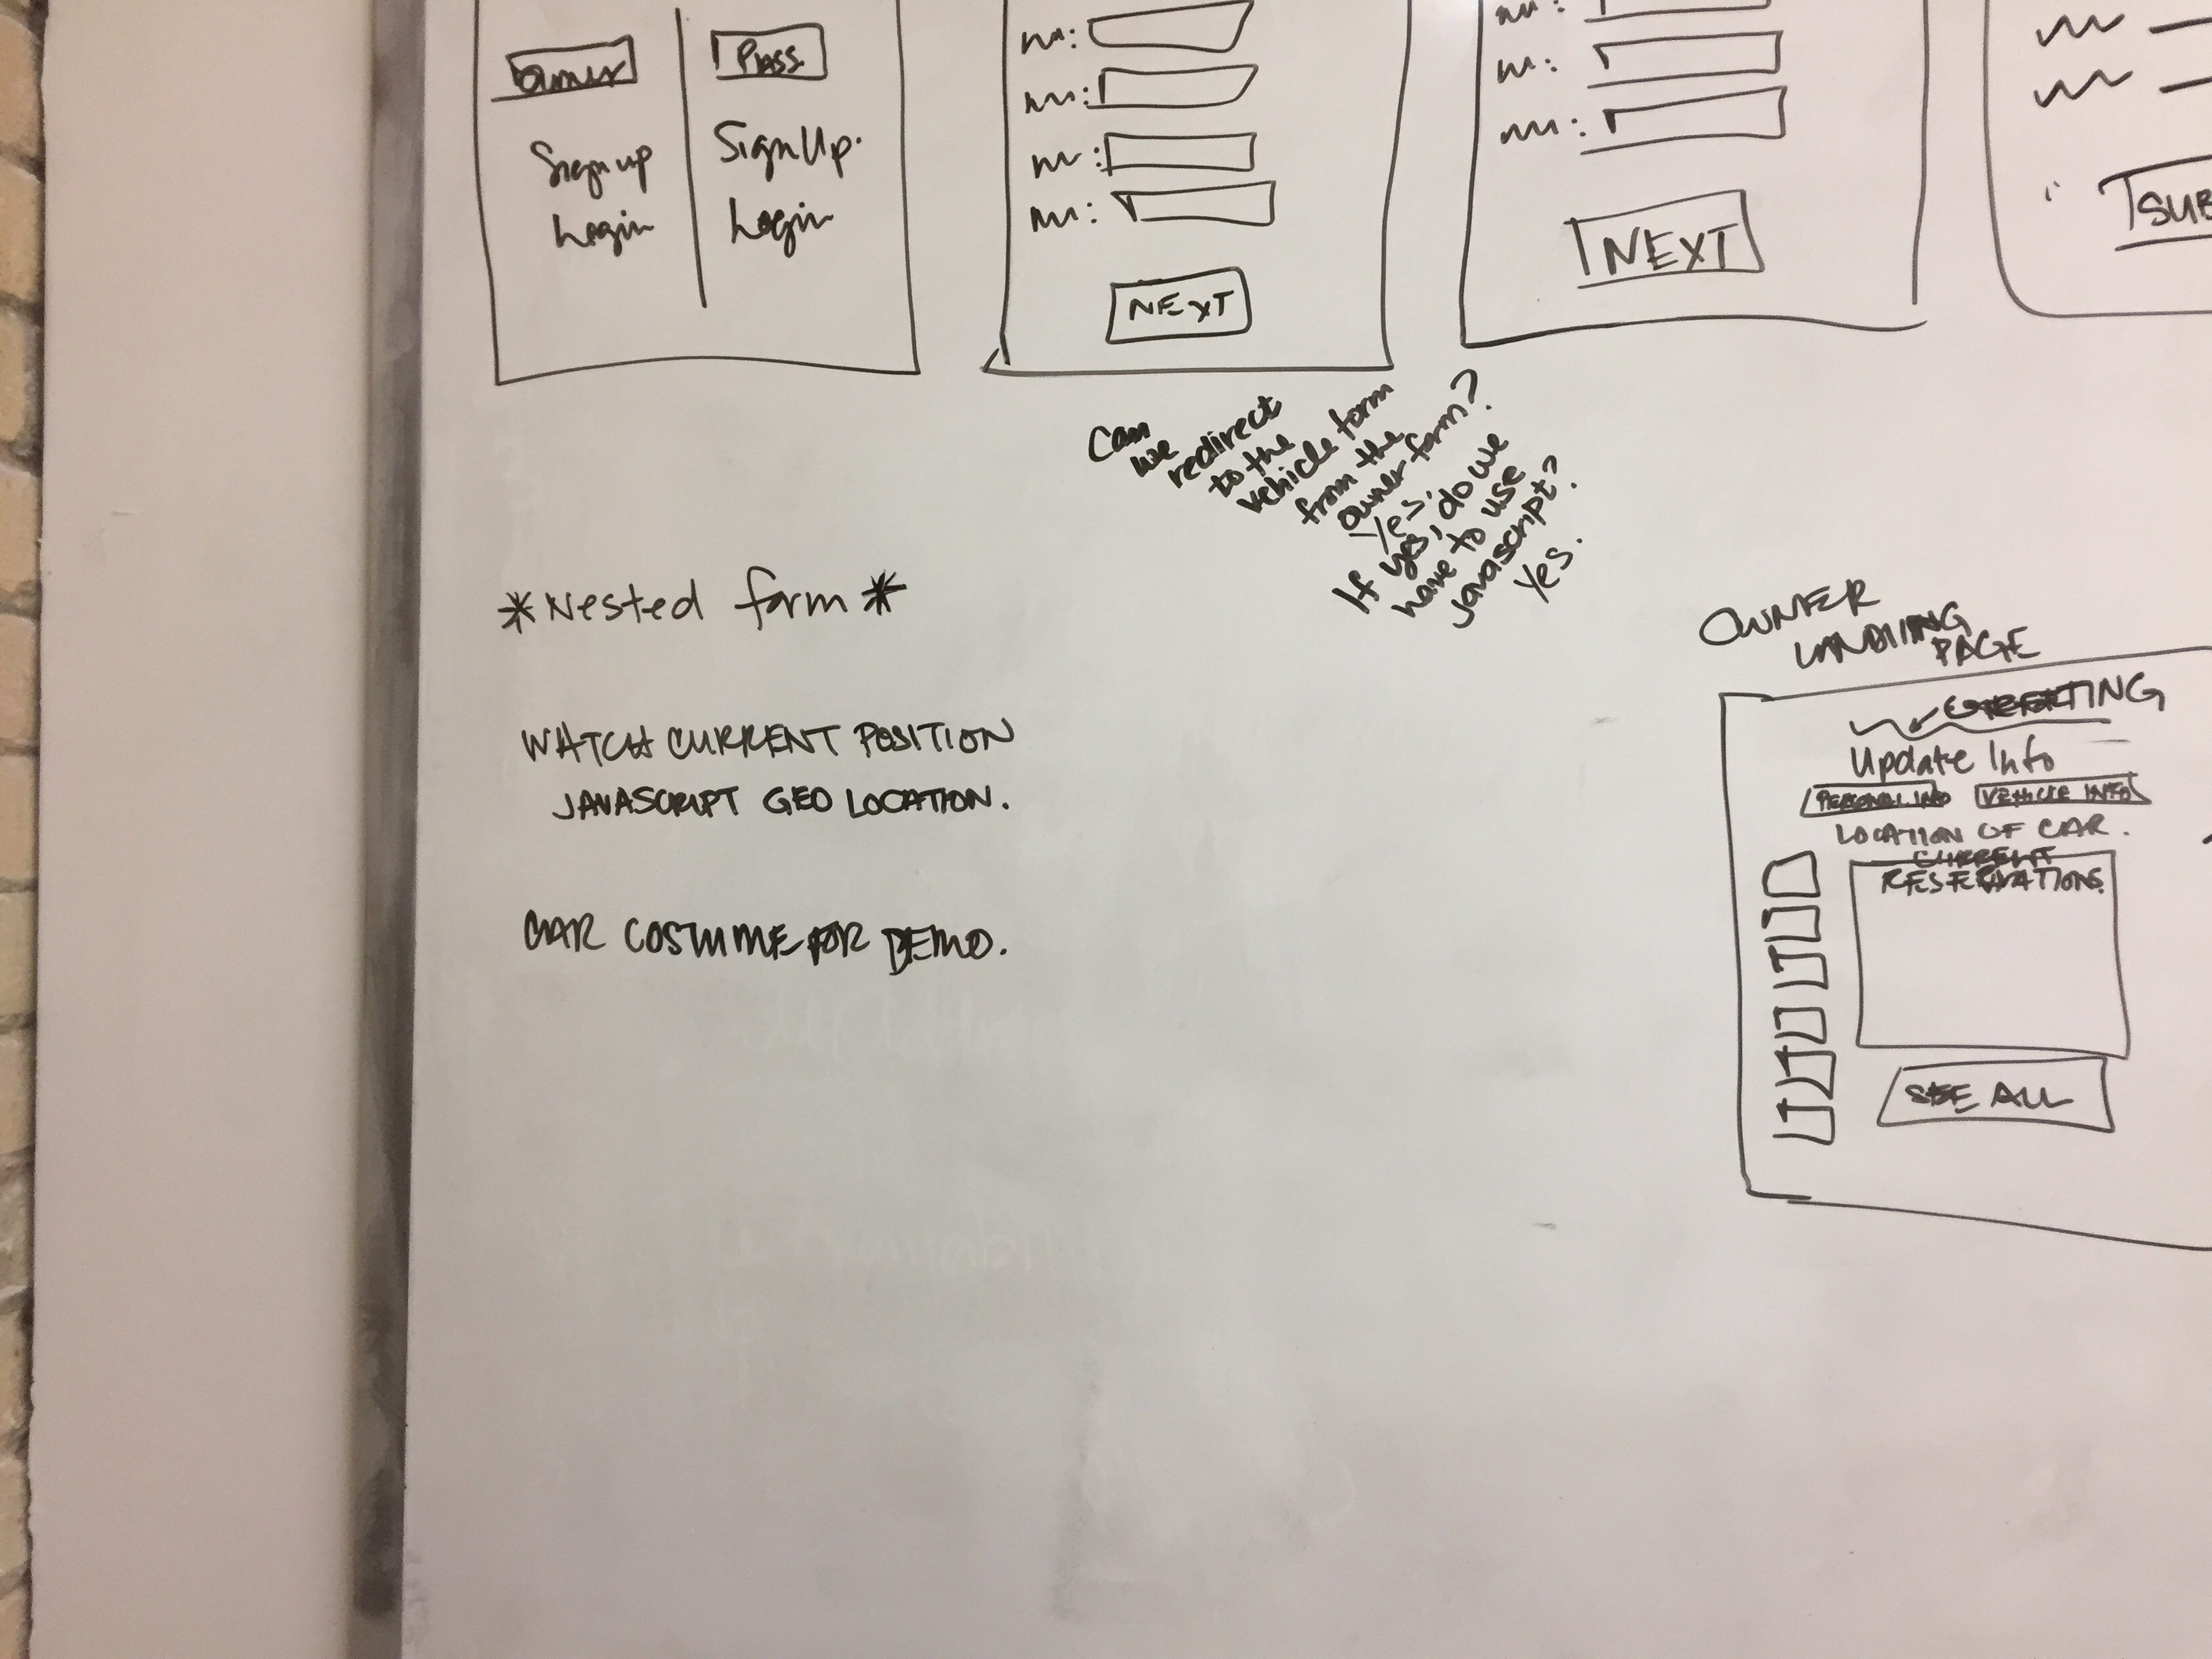 Owner
Sign up
Login
PASS
Sign Up.
Login
NEXT
NEXT
SUB
Can
we
redirect
to the
vehicle form
from the
owner form?
Yes,
If yes, do we
have to use
javascript?
Yes.
*Nested form*
WATCH CURRENT POSITION
JAVASCRIPT GEO LOCATION.
CAR COSTUME FOR DEMO.
OWNER
LANDING
PAGE
GREETING
Update Info
PERSONAL INFO
VEHICLE INFO
LOCATION OF CAR.
CURRENT
RESERVATIONS
SEE ALL